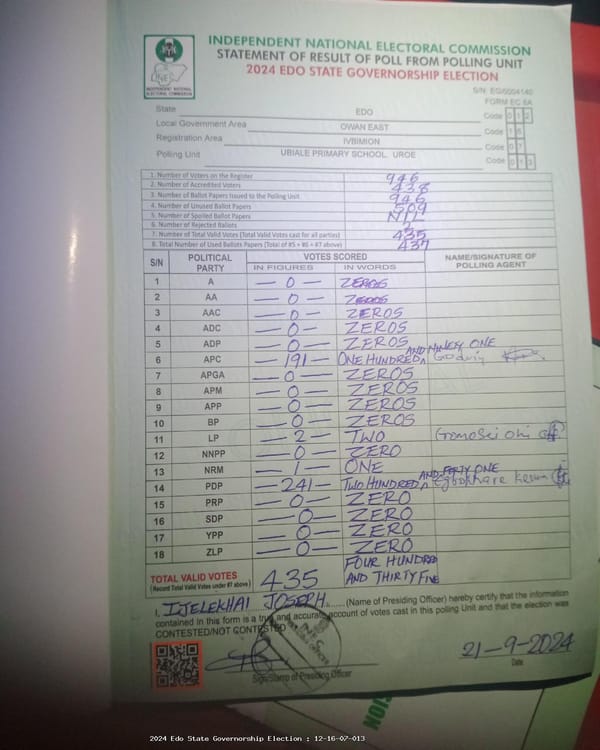 INDEPENDENT NATIONAL ELECTORAL COMMISSION
STATEMENT OF RESULT OF POLL FROM POLLING UNIT
2024 EDO STATE GOVERNORSHIP ELECTION
INEC
INDEPENDENT NATIONAL ELECTORAL COMMISSION
FORM EC 8A
State EDO Code 0 1 2
Local Government Area OWAN EAST Code 1 6
Registration Area IVBIMION Code 0 7
Polling Unit UBIALE PRIMARY SCHOOL, UROE Code 0 1 3
1. Number of Voters on the Register 946
2. Number of Accredited Voters 438
3. Number of Ballot Papers Issued to the Polling Unit 946
4. Number of Unused Ballot Papers 509
5. Number of Spoiled Ballot Papers NIL
6. Number of Rejected Ballots
7. Number of Total Valid Votes (Total Valid Votes cast for all parties) 435
8. Total Number of Used Ballots Papers (Total of #5 + #6 + #7 above) 437
S/N POLITICAL PARTY VOTES SCORED NAME/SIGNATURE OF POLLING AGENT
IN FIGURES IN WORDS
1 A — 0 — ZEROS
2 AA — 0 — ZEROS
3 AAC — 0 — ZEROS
4 ADC — 0 — ZEROS
5 ADP — 0 — ZEROS
6 APC — 191 — ONE HUNDRED AND NINETY ONE Godwin
7 APGA — 0 — ZEROS
8 APM — 0 — ZEROS
9 APP — 0 — ZEROS
10 BP — 0 — ZEROS
11 LP — 2 — TWO
12 NNPP — 0 — ZERO
13 NRM — 1 — ONE
14 PDP — 241 — TWO HUNDRED AND FORTY ONE
15 PRP — 0 — ZERO
16 SDP — 0 — ZERO
17 YPP — 0 — ZERO
18 ZLP — 0 — ZERO
TOTAL VALID VOTES 435 FOUR HUNDRED AND THIRTY FIVE
(Record Total Valid Votes under #7 above)
I, IJELEKHAI JOSEPH (Name of Presiding Officer) hereby certify that the information
contained in this form is a true and accurate account of votes cast in this polling Unit and that the election was
CONTESTED/NOT CONTESTED
INEC
Sign/Stamp of Presiding Officer
21-9-2024
Date
2024 Edo State Governorship Election : 12-16-07-013